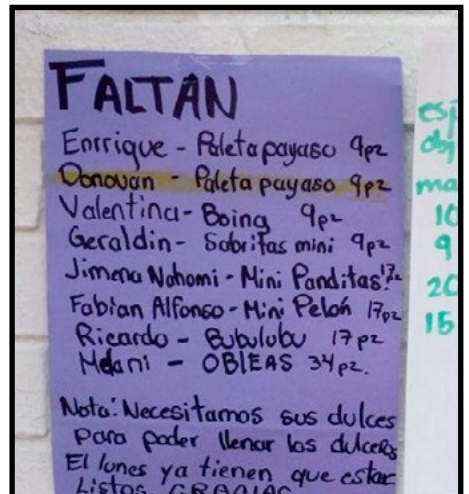 FALTAN
Enrrique - Paleta payaso 9pz
Donovan - Paleta payaso 9pz
Valentina - Boing 9pz
Geraldin - Sabritas mini 9pz
Jimena Nahomi - Mini Panditas 17z
Fabian Alfonso - Mini Pelón 17pz
Ricardo - Bubulubu 17pz
Melani - OBLEAS 34pz.
Nota: Necesitamos sus dulces
para poder llenar los dulceros
El lunes ya tienen que estar
Listos GRACIAS
10
9
20
15